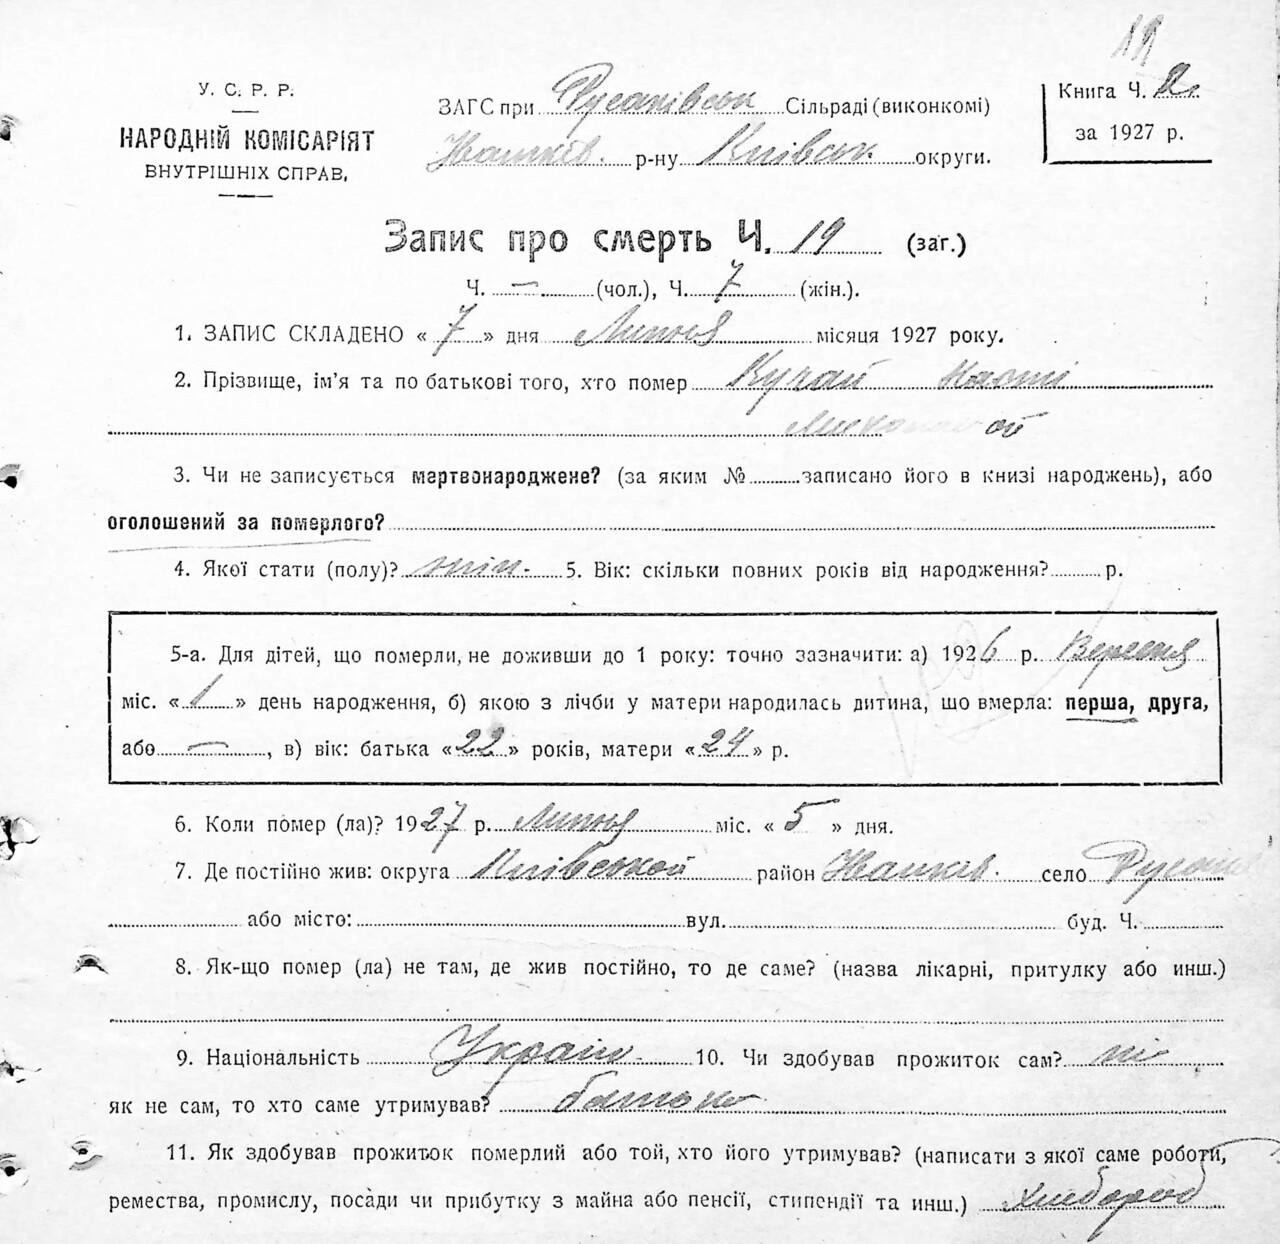 19
У. С. Р. Р.
НАРОДНІЙ КОМІСАРІЯТ
ВНУТРІШНІХ СПРАВ.
ЗАГС при Русаківськ Сільраді (виконкомі)
Іванків. р-ну Київськ округи.
Книга Ч. 2.
за 1927 р.
Запис про смерть Ч. 19 (заг.)
Ч. — (чол.), Ч. 7 (жін.).
1. ЗАПИС СКЛАДЕНО « 7 » дня Липня місяця 1927 року.
2. Прізвище, ім'я та по батькові того, хто помер Кучай Насті
3. Чи не записується мертвонароджене? (за яким № записано його в книзі народжень), або
оголошений за померлого?
4. Якої стати (полу)? жін. 5. Вік: скільки повних років від народження? р.
5-а. Для дітей, що померли, не доживши до 1 року: точно зазначити: а) 1926 р. Вересня
міс. « 1 » день народження, б) якою з лічби у матери народилась дитина, що вмерла: перша, друга,
або —, в) вік: батька «22» років, матери «24» р.
6. Коли помер (ла)? 1927 р. Липня міс. « 5 » дня.
7. Де постійно жив: округа Київської район Іванків. село
або місто: вул. буд. Ч.
8. Як-що помер (ла) не там, де жив постійно, то де саме? (назва лікарні, притулку або инш.)
9. Національність Україн. 10. Чи здобував прожиток сам? ні
як не сам, то хто саме утримував? батько
11. Як здобував прожиток померлий або той, хто його утримував? (написати з якої саме роботи,
ремества, промислу, посади чи прибутку з майна або пенсії, стипендії та инш.) хлібороб